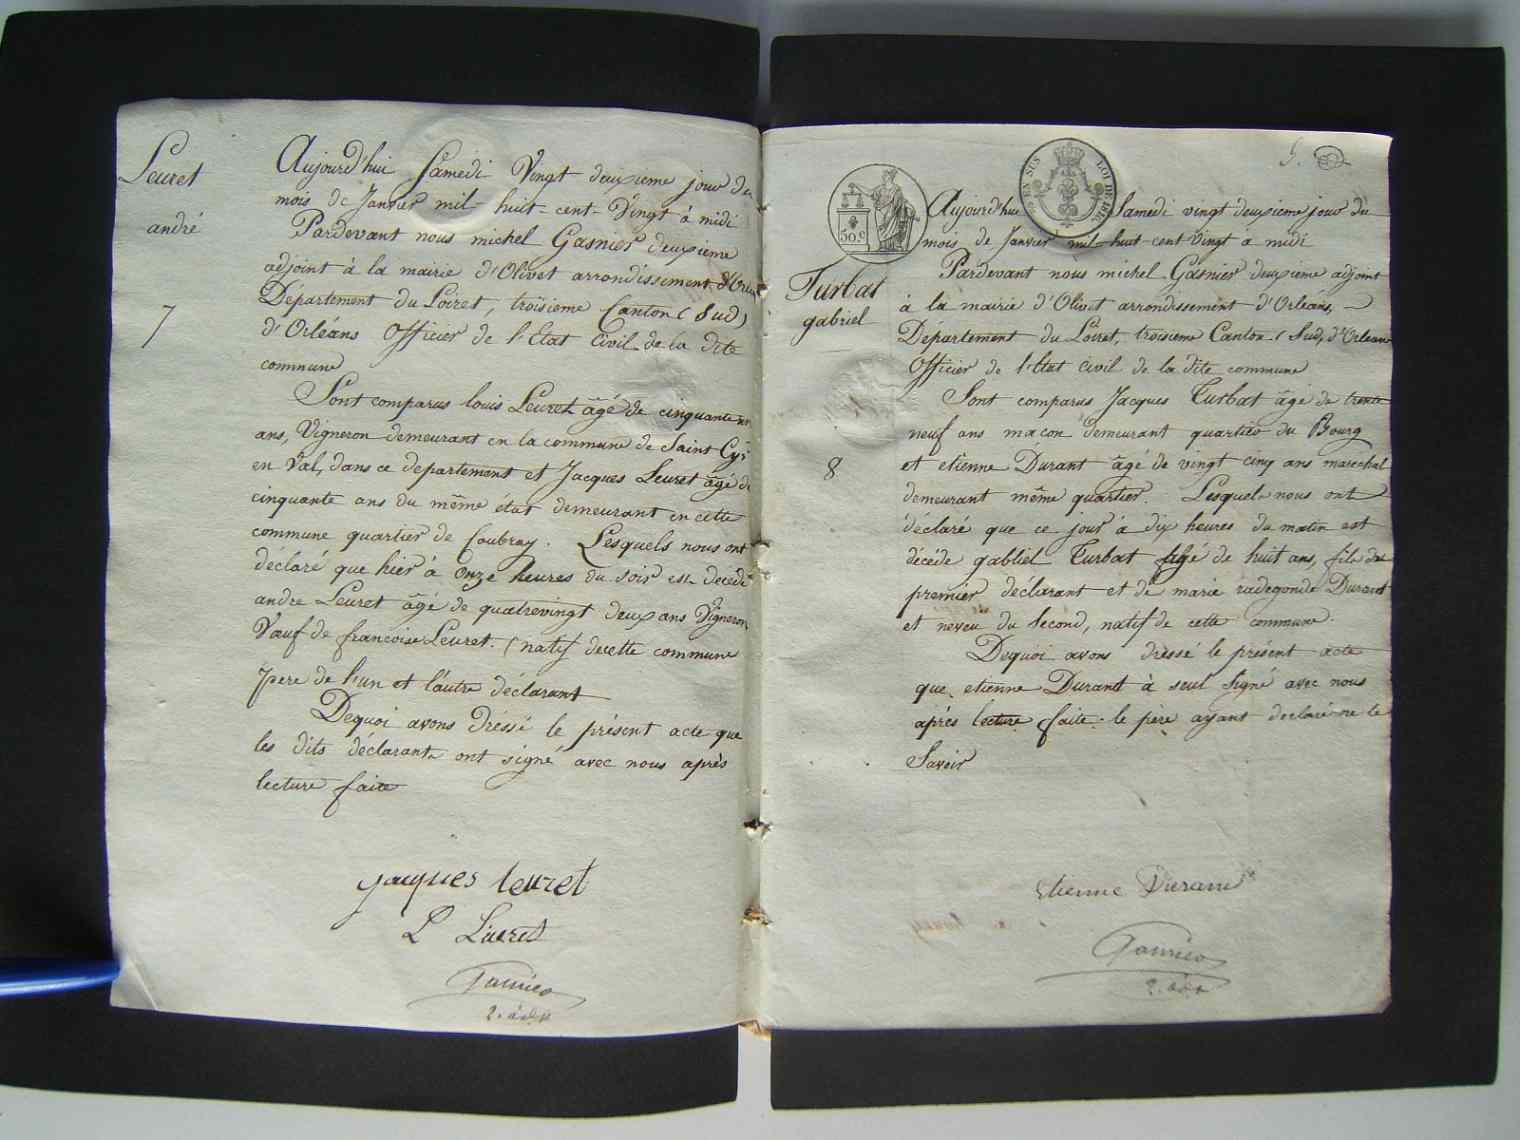 Leuret
andré
7
Aujourd'hui Samedi Vingt deuxieme jour du
mois de Janvier mil- huit- cent- Vingt à midi
Pardevant nous michel Gasnier deuxieme
adjoint à la mairie d'Olivet arrondissement d'Orléans
Département du Loiret, troisieme Canton (Sud)
d'Orléans Officier de l'Etat Civil de la dite
commune
Sont comparus louis Leuret âgé de cinquante
ans, Vigneron demeurant en la commune de Saint Cyr
en Val, dans ce departement et Jacques Leuret âgé de
cinquante ans du même état demeurant en cette
commune quartier de Coubray. Lesquels nous ont
déclaré que hier à onze heures du soir est decedé
andre Leuret âgé de quatrevingt deux ans Vigneron
Vœuf de francoise Leuret. (natif decette commune
pere de l'un et l'autre déclarant
Dequoi avons dréssé le présent acte que
les dits déclarants ont signé avec nous après
lecture faite
jacques leuret
L Leuret
2. adjt
50.c
EN SUS
LOI DE 1816
5.
Turbat
gabriel
8
Aujourd'hui Samedi vingt deuxieme jour du
mois de Janvier mil- huit- cent vingt à midi
Pardevant nous michel Gasnier deuxieme adjoint
à la mairie d'Olivet arrondissement d'Orléans,
Département du Loiret, troisieme Canton (Sud) d'Orleans
Officier de l'Etat Civil de la dite commune
Sont comparus Jacques Turbat âgé de trente
neuf ans macon demeurant quartier du Bourg
et etienne Durant âgé de vingt cinq ans marechal
demeurant même quartier. Lesquels nous ont
déclaré que ce jour à dix heures du matin est
décéde gabliel Turbat âgé de huit ans, fils du
premier déclarant et de marie radegonde Durant
et neveu du Second, natif de cette commune.
Dequoi avons dressé le présent acte
que etienne Durant à seul signé avec nous
après lecture faite. le père ayant declaré ne le
Savoir
Etienne Durant
2. adjt